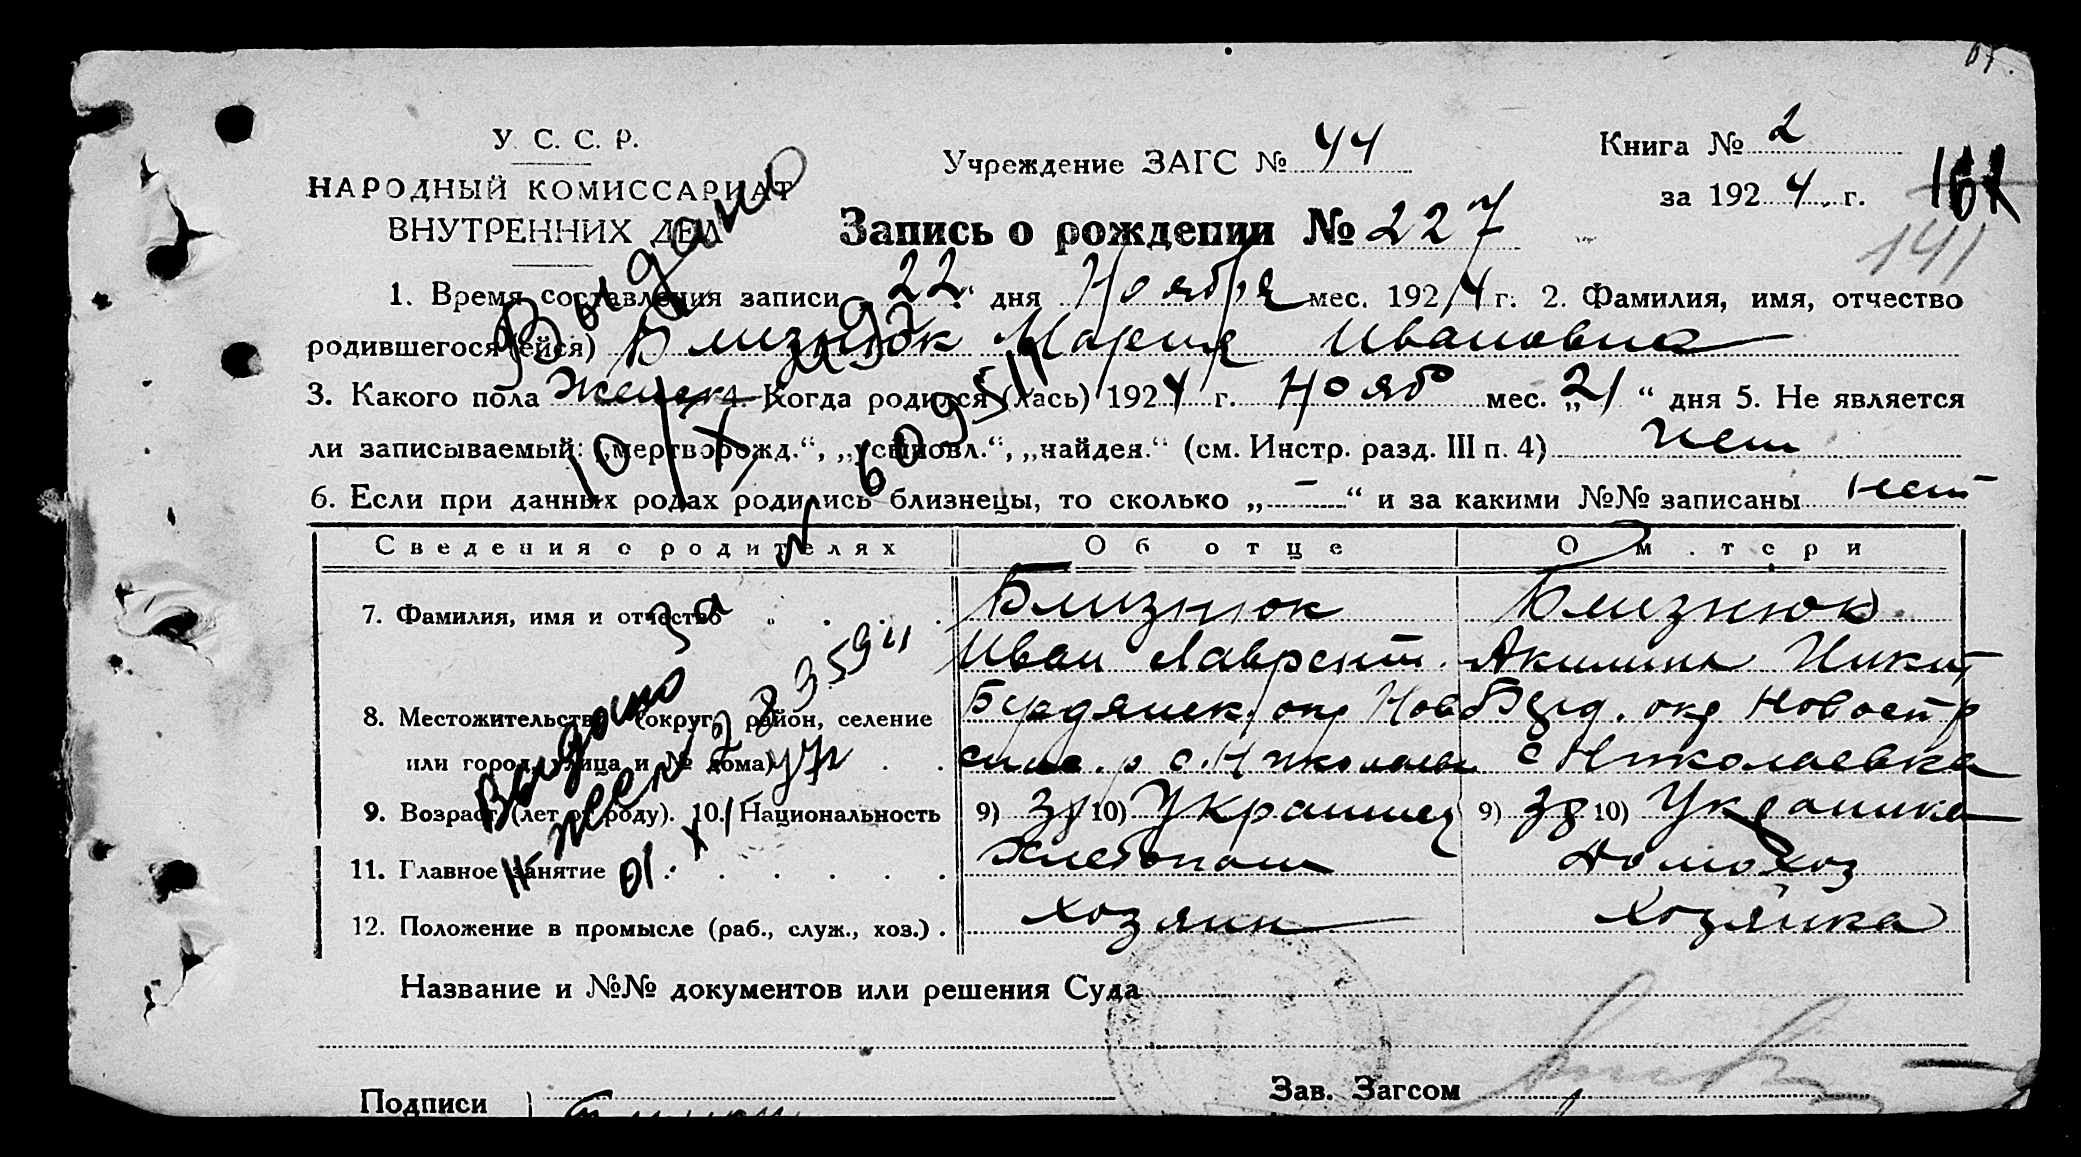 У. С. С. Р.
НАРОДНЫЙ КОМИССАРИАТ
ВНУТРЕННИХ ДЕЛ
Учреждение ЗАГС № 44
Книга № 2
за 1924 г.
141
Запись о рождении № 227
1. Время составления записи „22“ дня Ноября мес. 1924 г. 2. Фамилия, имя, отчество
родившегося (ейся) Близнюк Мария Ивановна
3. Какого пола Женск 4. Когда родился (лась) 1924 г. Нояб мес. „21“ дня 5. Не является
ли записываемый: „мертворожд.“, „усыновл.“, „найден.“ (см. Инстр. разд. III п. 4) нет
6. Если при данных родах родились близнецы, то сколько „ — “ и за какими №№ записаны нет
Сведения о родителях Об отце О матери
7. Фамилия, имя и отчество Близнюк Близнюк
Иван Лаврент. Акилина Никит
8. Местожительство (округ, район, селение Бердянск. окр Нов Берд. окр Новоспр
или город, улица и № дома) с. Николаев с Николаевка
9. Возраст (лет от роду). 10. Национальность 9) 10) Украинец 9) 38 10) Украинка
11. Главное занятие Хлебопаш Домохоз
12. Положение в промысле (раб., служ., хоз.) хозяин хозяйка
Название и №№ документов или решения Суда
Зав. Загсом
Подписи
Выдано
Выдано